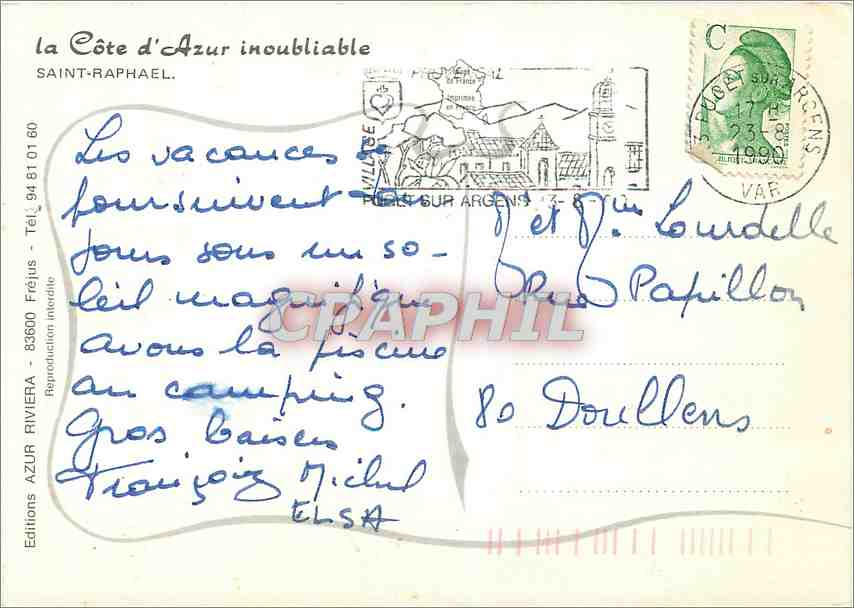 la Côte d'Azur inoubliable
SAINT-RAPHAEL.
Les vacances se
poursuivent tou-
jours sous un so-
leil magnifique
avons la piscine
au camping.
Gros baisers
Françoise Michel
ELSA
VILLAGE
de France
Imprimée
en France
PUGET SUR ARGENS 3-8-
C
PUGET SUR ARGENS
17-H
23-8
1990
VAR
M et Mme Lourdelle
Rue Papillon
80 Doullens
CPAPHIL
Editions AZUR RIVIERA - 83600 Fréjus - Tél. 94 81 01 60
Reproduction interdite